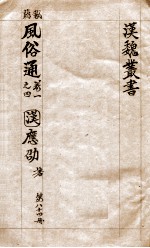 漢魏叢書
新
風俗通 卷一之四 漢 應劭 著
第八十四冊